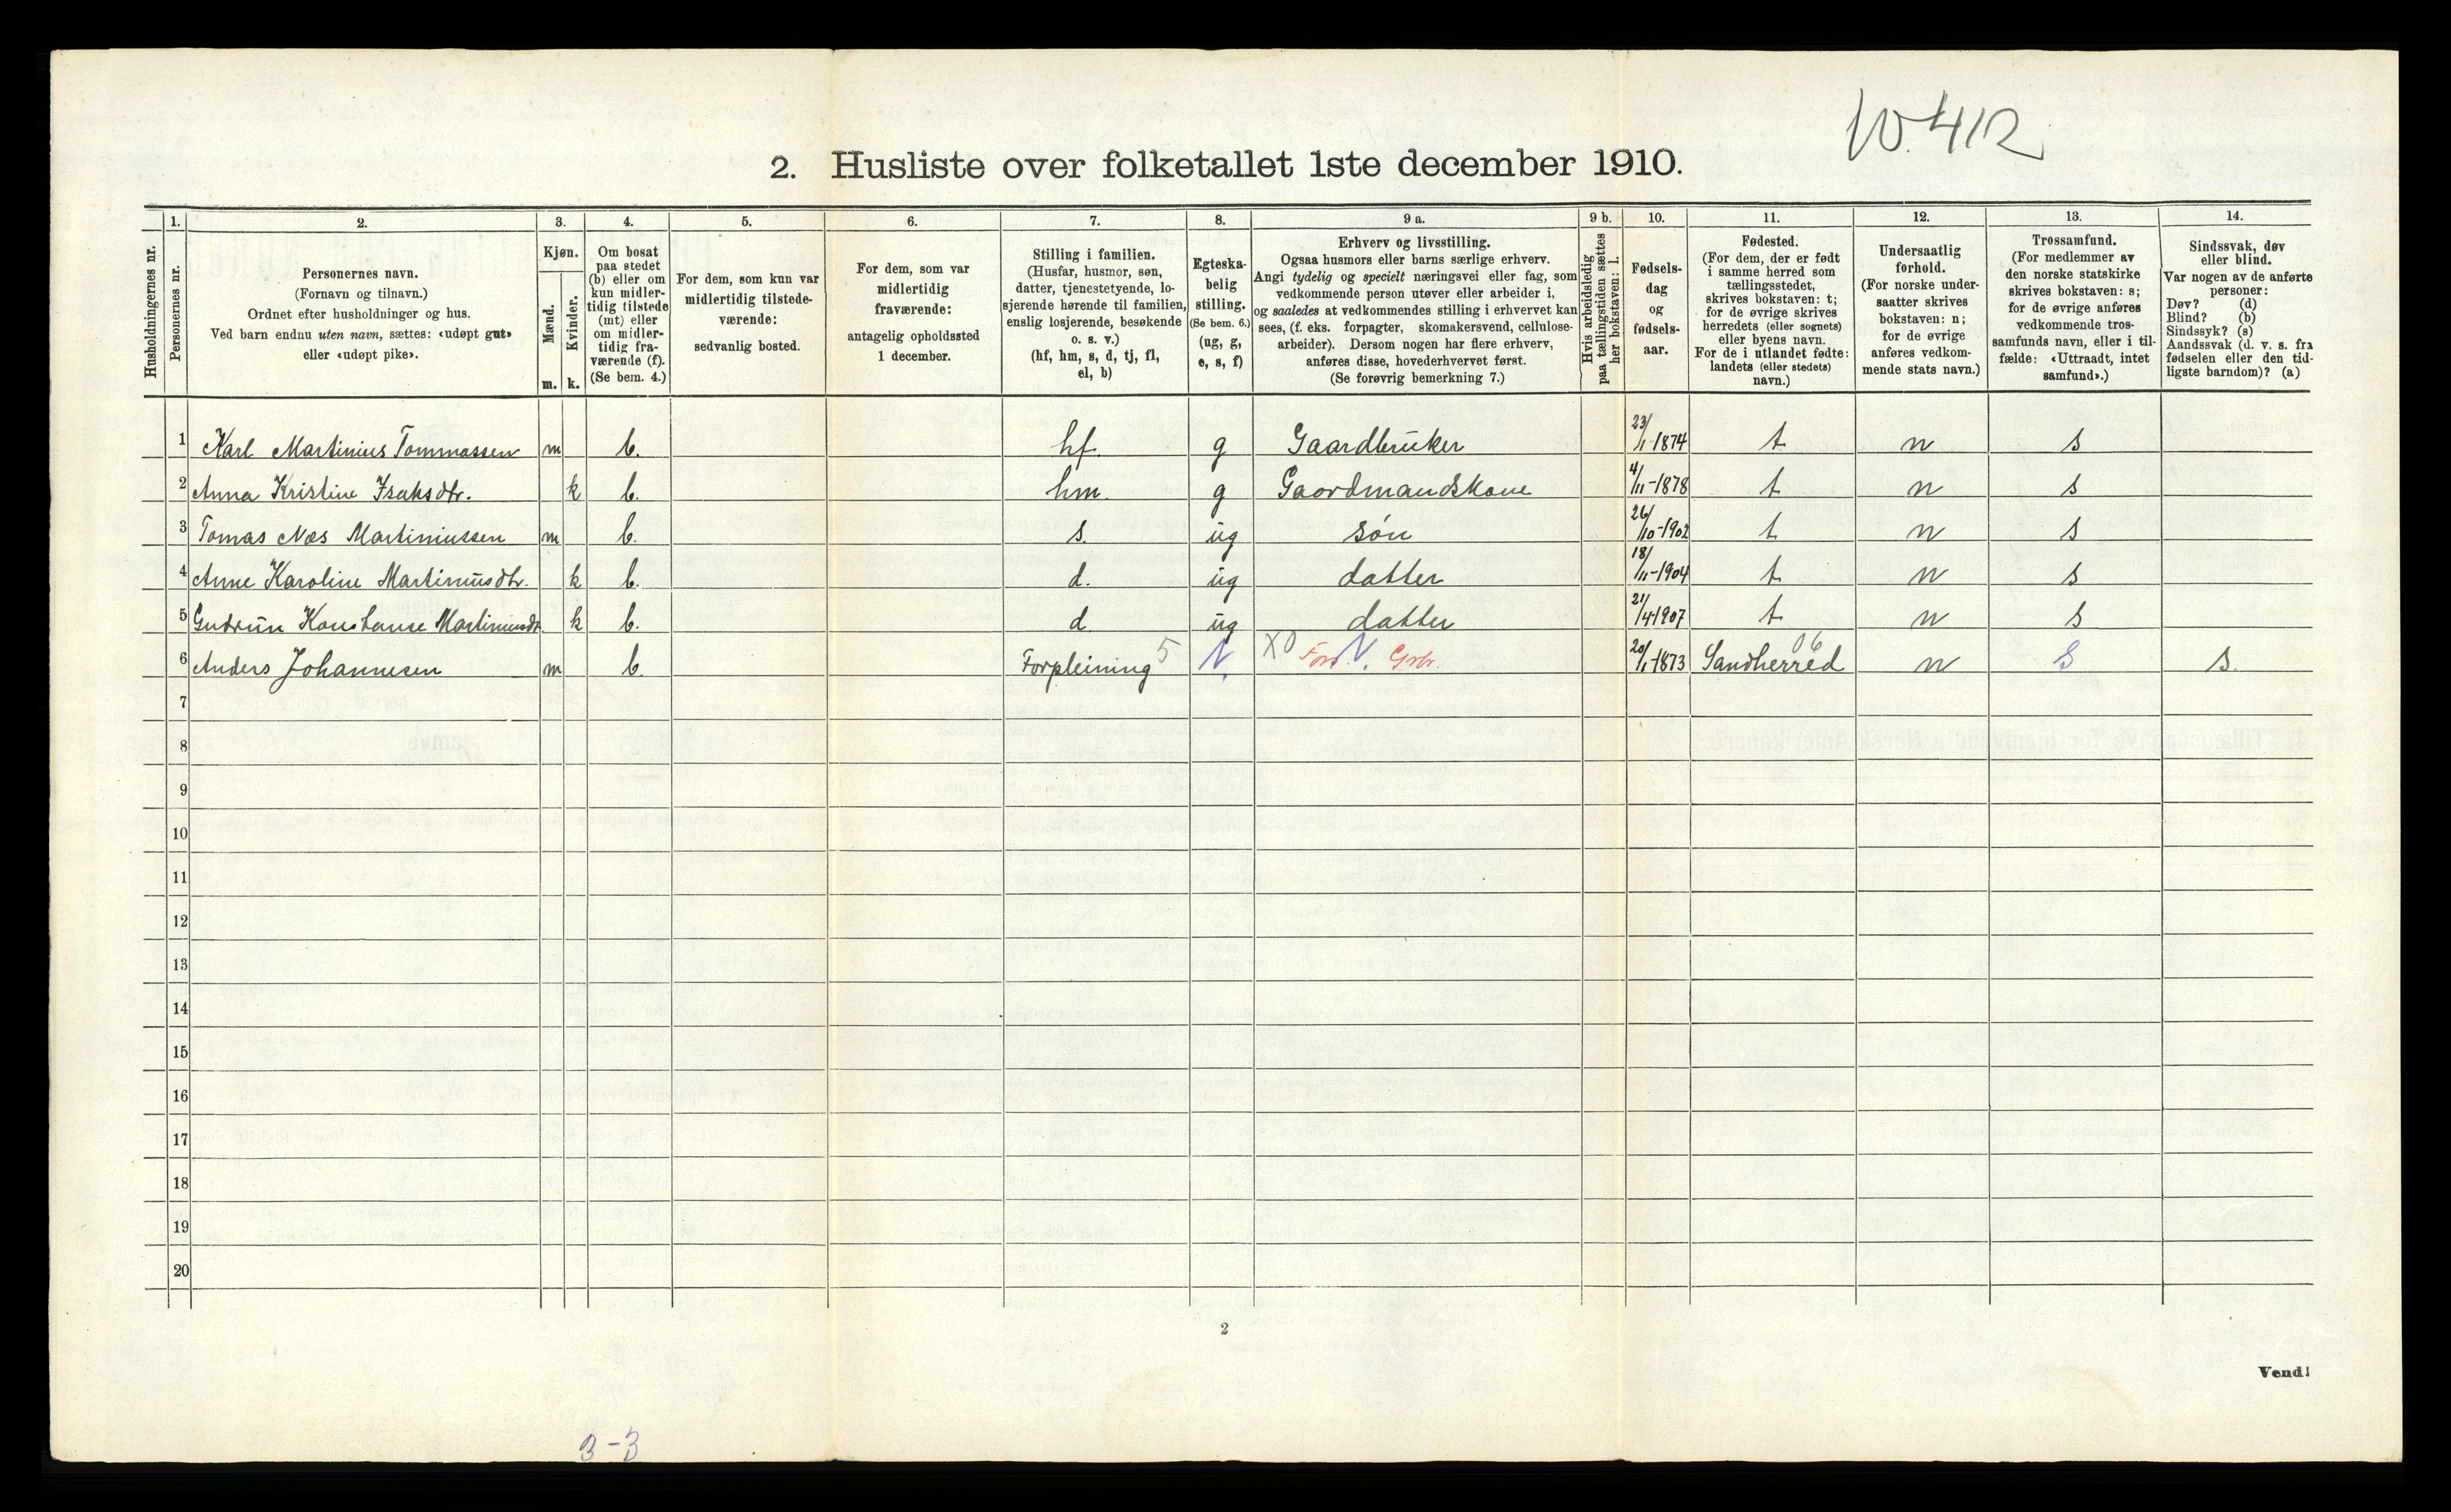 10.412
2. Husliste over folketallet 1ste december 1910.
Husholdningernes nr.
1.
Personernes nr.
2.
Personernes navn.
(Fornavn og tilnavn.)
Ordnet efter husholdninger og hus.
Ved barn endnu uten navn, sættes: «udøpt gut»
eller «udøpt pike».
3.
Kjøn.
Mænd.
Kvinder.
m. k.
4.
Om bosat
paa stedet
(b) eller om
kun midler-
tidig tilstede
(mt) eller
om midler-
tidig fra-
værende (f).
(Se bem. 4.)
5.
For dem, som kun var
midlertidig tilstede-
værende:
sedvanlig bosted.
6.
For dem, som var
midlertidig
fraværende:
antagelig opholdssted
1 december.
7.
Stilling i familien.
(Husfar, husmor, søn,
datter, tjenestetyende, lo-
sjerende hørende til familien,
enslig losjerende, besøkende
o. s. v.)
(hf, hm, s, d, tj, fl,
el, b)
8.
Egteska-
belig
stilling.
(Se bem. 6.)
(ug, g,
e, s, f)
9 a.
Erhverv og livsstilling.
Ogsaa husmors eller barns særlige erhverv.
Angi tydelig og specielt næringsvei eller fag, som
vedkommende person utøver eller arbeider i,
og saaledes at vedkommendes stilling i erhvervet kan
sees, (f. eks. forpagter, skomakersvend, cellulose-
arbeider). Dersom nogen har flere erhverv,
anføres disse, hovederhvervet først.
(Se forøvrig bemerkning 7.)
9 b.
Hvis arbeidsledig
paa tællingstiden sættes
her bokstaven: l.
10.
Fødsels-
dag
og
fødsels-
aar.
11.
Fødested.
(For dem, der er født
i samme herred som
tællingsstedet,
skrives bokstaven: t;
for de øvrige skrives
herredets (eller sognets)
eller byens navn.
For de i utlandet fødte:
landets (eller stedets)
navn.)
12.
Undersaatlig
forhold.
(For norske under-
saatter skrives
bokstaven: n;
for de øvrige
anføres vedkom-
mende stats navn.)
13.
Trossamfund.
(For medlemmer av
den norske statskirke
skrives bokstaven: s;
for de øvrige anføres
vedkommende tros-
samfunds navn, eller i til-
fælde: «Uttraadt, intet
samfund».)
14.
Sindssvak, døv
eller blind.
Var nogen av de anførte
personer:
Døv? (d)
Blind? (b)
Sindssyk? (s)
Aandssvak (d. v. s. fra
fødselen eller den tid-
ligste barndom)? (a)
1 Karl Martinius Tommassen m b. hf. g Gaardbruker 23/1-1874 t n s
2 Anna Kristine Isaksdtr. k b. hm. g Gaordmandskone 4/11-1878 t n s
3 Tomas Næs Martiniussen m b. s. ug søn 26/10-1902 t n s
4 Anne Karoline Martiniusdtr. k b. d. ug datter 18/11-1904 t n s
5 Gudrun Konstanse Martiniusdtr. k b. d ug datter 21/4-1907 t n s
6 Anders Johannesen m b. Forpleining 5 N. X0 V. Grbr. 20/1-1873 Sandherred 06 n S s.
7
8
9
10
11
12
13
14
15
16
17
18
19
20
2
Vend!
3-3